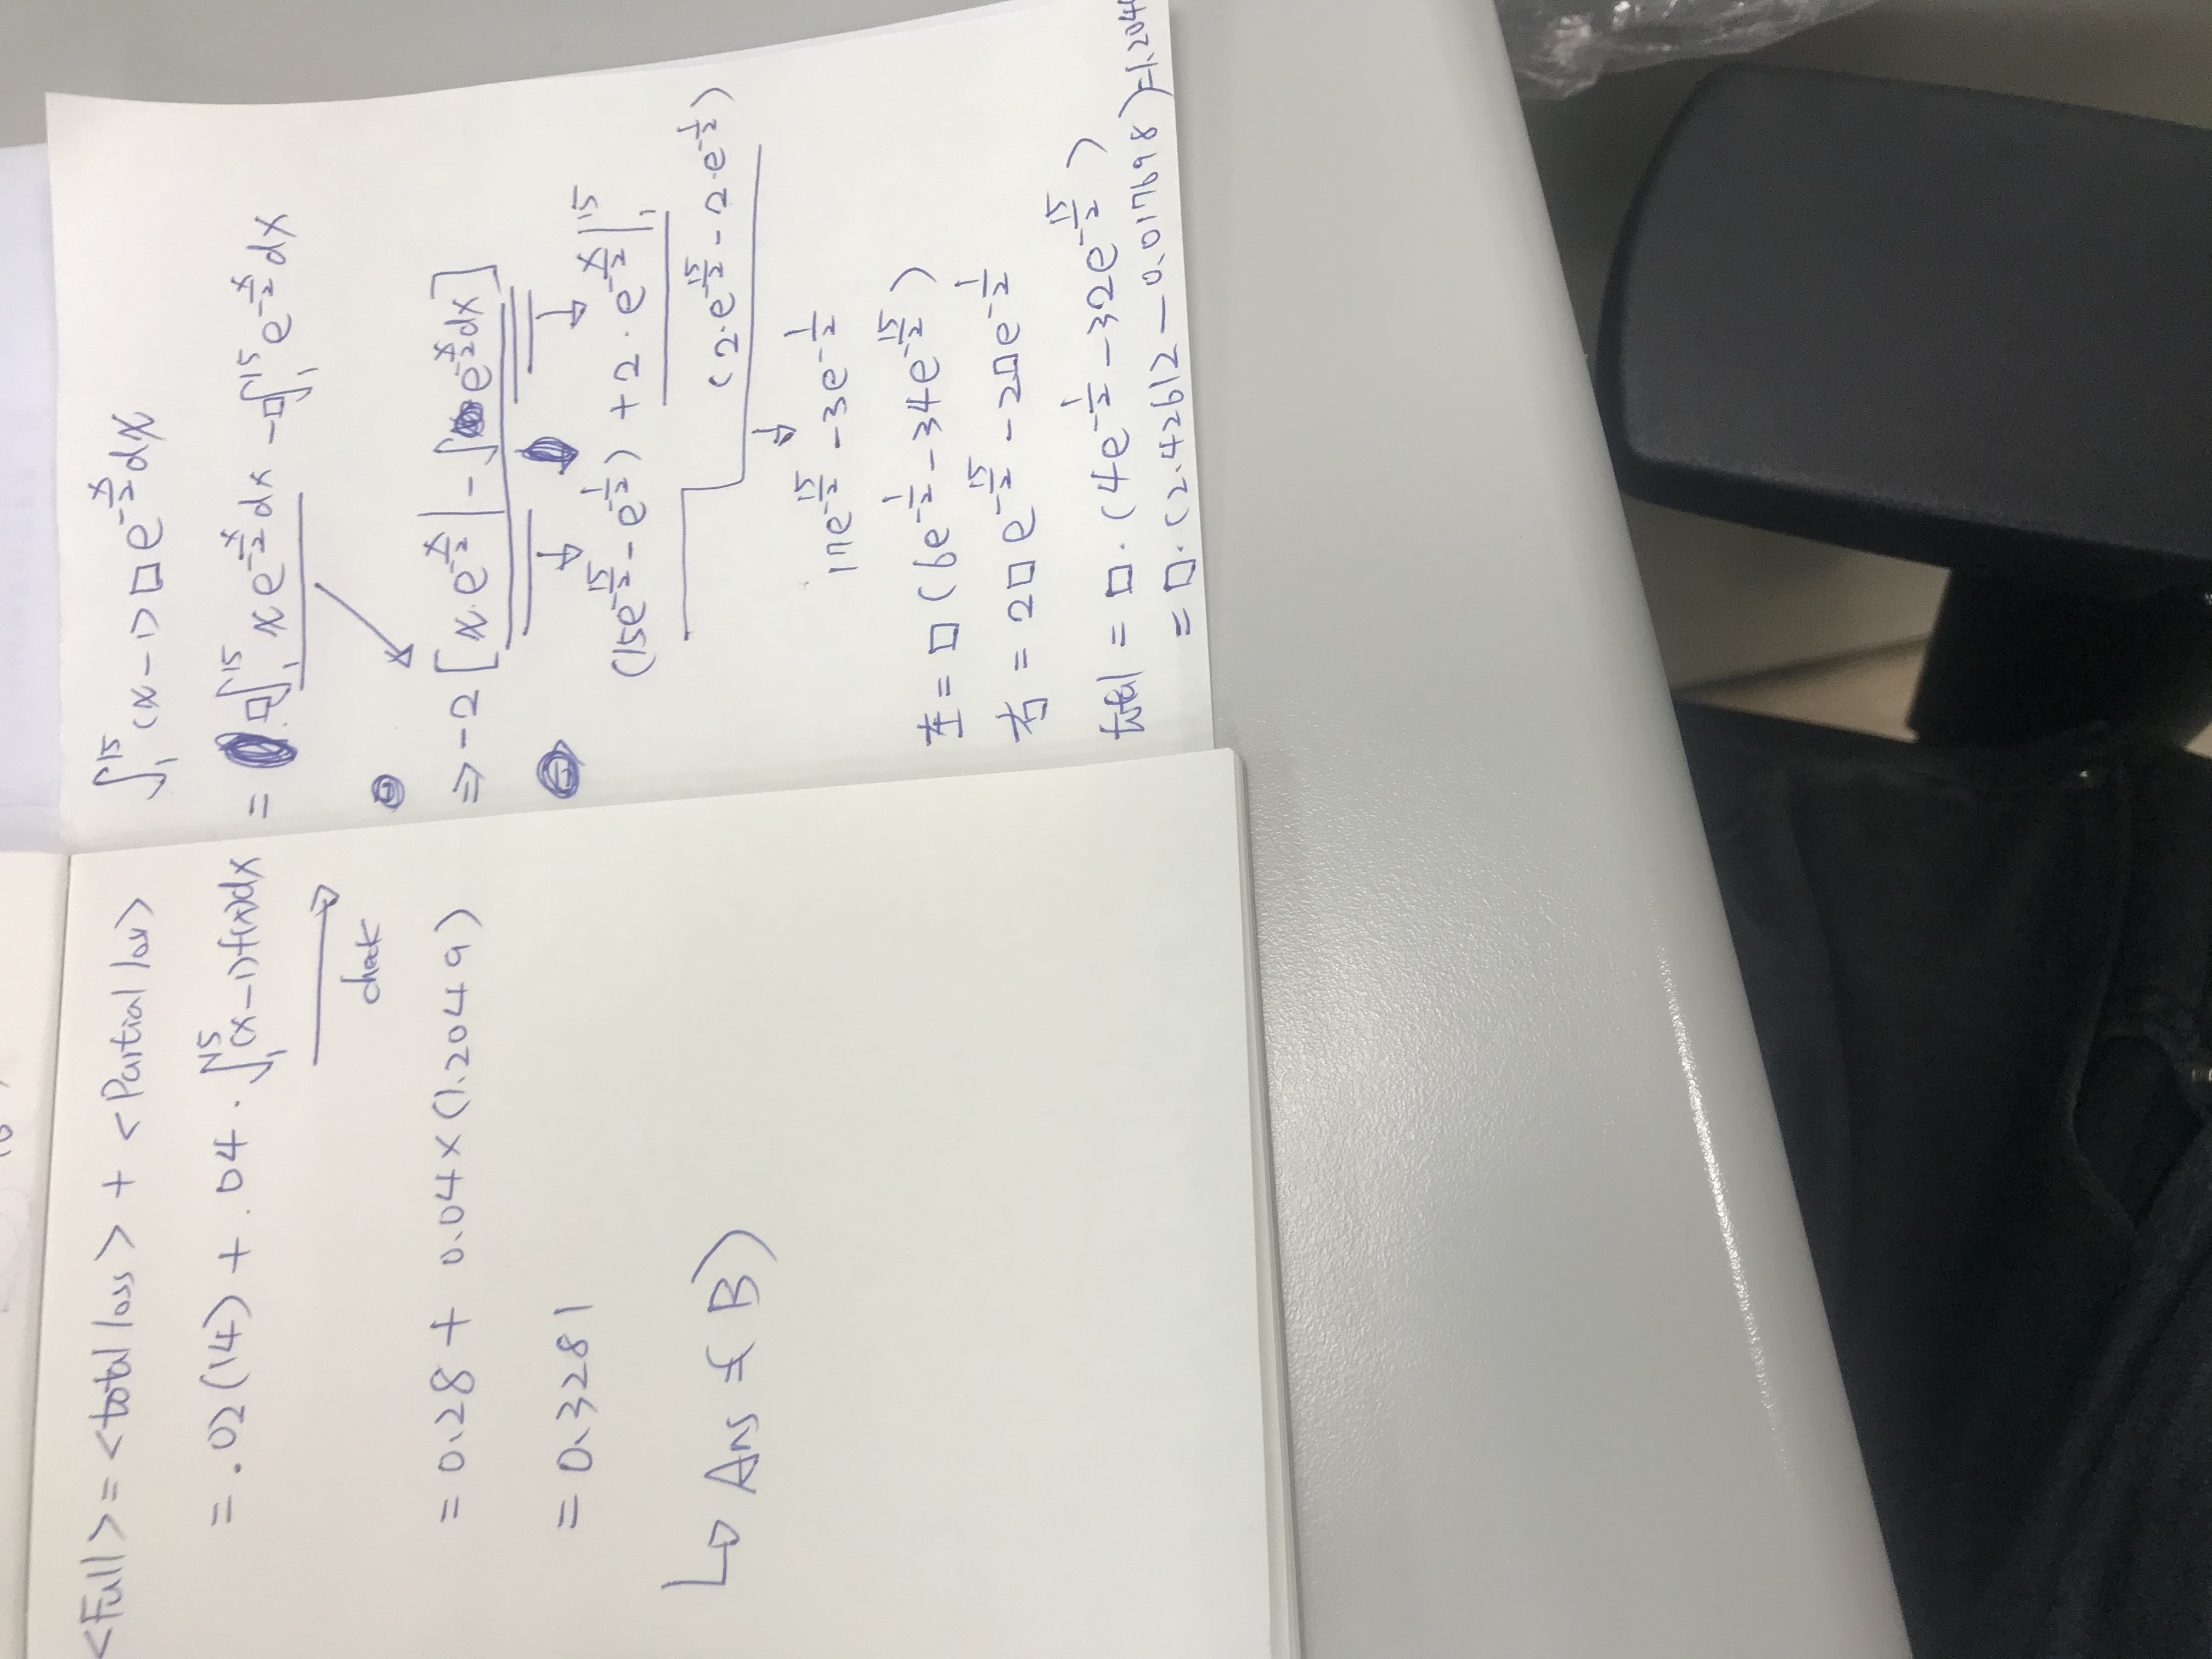 <Full> = <total loss> + <Partial loss>
= .02(14) + .04 · ∫₁¹⁵(x-1)f(x)dx
check
= 0.28 + 0.04×(1.2049)
= 0.3281
↳ Ans (B)
∫₁¹⁵ (x-1) □ e^{-x/2} dx
= □∫₁¹⁵ x e^{-x/2} dx - □∫₁¹⁵ e^{-x/2} dx
⇒ -2 [x·e^{-x/2}| - ∫ e^{-x/2} dx]
(15e^{-15/2} - e^{-1/2}) + 2 · e^{-x/2}|₁¹⁵
(2·e^{-15/2} - 2·e^{-1/2})
17e^{-15/2} - 3e^{-1/2}
左 = □ (6e^{-1/2} - 34e^{-15/2})
右 = 2□e^{-15/2} - 2□e^{-1/2}
total = □·(4e^{-1/2} - 32e^{-15/2})
= □·(2.42612 - 0.017698) = 1.204